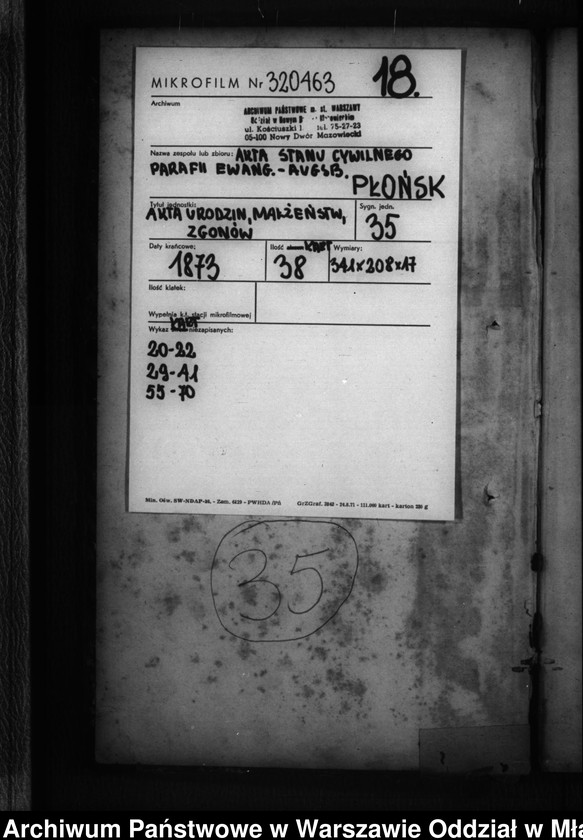 MIKROFILM Nr 320463
18.
Archiwum
ARCHIWUM PAŃSTWOWE m. st. WARSZAWY
ul. Kościuszki 1 tel. 75-27-23
05-100 Nowy Dwór Mazowiecki
Nazwa zespołu lub zbioru: AKTA STANU CYWILNEGO
PARAFII EWANG.-AUGSB.
PŁOŃSK
Tytuł jednostki:
AKTA URODZIN, MAŁŻEŃSTW,
ZGONÓW
Sygn. jedn.
35
Daty krańcowe:
1873
Ilość KART
38
Wymiary:
341x208x17
Ilość klatek:
Wypełnia kł. stacji mikrofilmowej
Wykaz KART niezapisanych:
20-22
29-41
55-70
35
Archiwum Państwowe w Warszawie Oddział w Mła